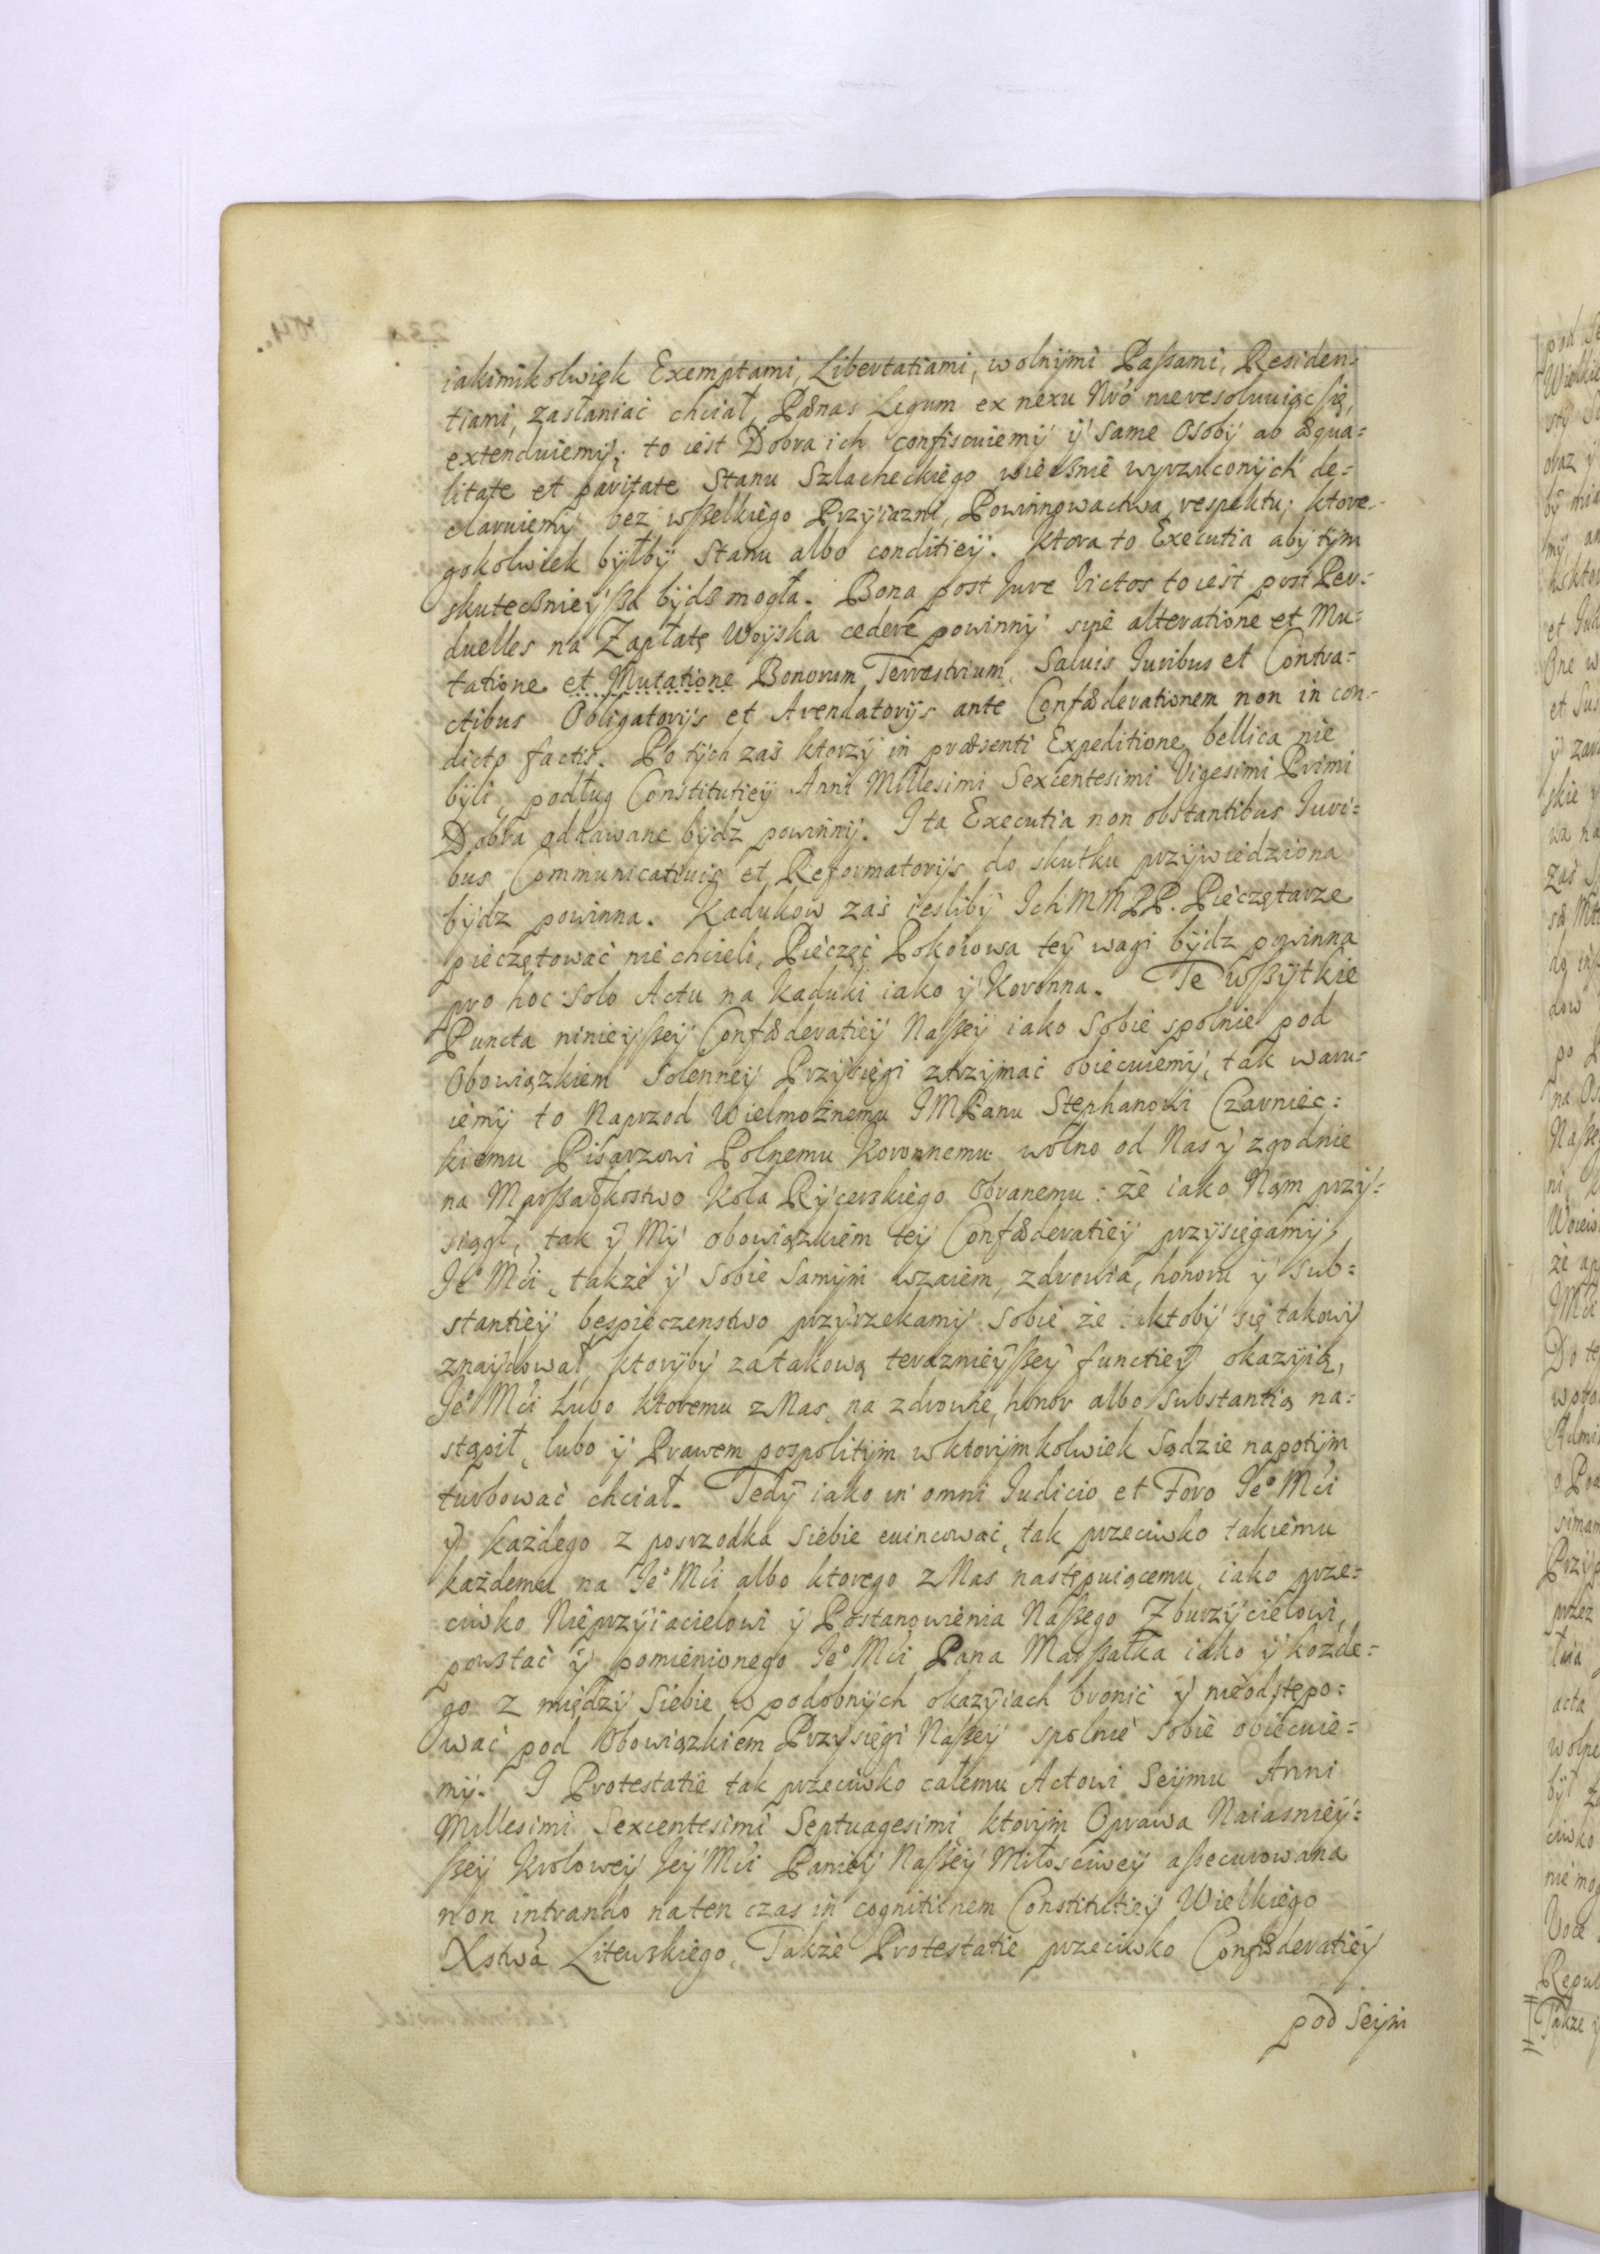 iakimikolwiek Exemptami, Libertatiami, wolnÿmi Paßami, Residen-
tiami, zasłaniać chciał, Pœnas Legum ex nexu Nrō nieresoluuiąc się,
extenduiemÿ, to iest Dobra ich confiscuiemÿ ÿ same Osobÿ ab æqua-
litate et paritate Stanu Szlacheckiego wiecżnie wyrzuconÿch de-
claruiemÿ bez wßelkiego Przÿiazni, Powinnowactwa, respektu, ktore-
gokolwiek bÿłbÿ Stanu albo conditieÿ. Ktora to Executia abÿ tÿm
skutecżnieÿßa bÿdź mogła. Bona post Iure Victos to iest post Per-
duelles na Zapłatę Woÿska cedere powinnÿ sine alteratione et Mu-
tatione et Mutatione Bonorum Terrestrium, Saluis Iuribus et Contra-
ctibus Obligatorÿs et Arendatorÿs ante Confœderationem non in con-
dicto factis. Po tÿch zaś ktorzÿ in præsenti Expeditione bellica nie
bÿli, podług Constitutieÿ Anni Millesimi Sexcentesimi Vigesimi Primi
Dobra oddawane bÿdź powinnÿ. I ta Executia non obstantibus Iuri-
bus Communicatiuis et Reformatorÿs do skutku przÿwiedziona
bÿdz powinna. Kadukow zaś iesliby Ich MM PP. Pieczętarze
pieczętować nie chcieli, Pieczęć Pokoiowa teÿ wagi bÿdz powinna
pro hoc solo Actu na Kaduki iako ÿ Koronna. Te wßÿtkie
Puncta ninieÿßeÿ Confœderatieÿ Naßeÿ iako Sobie spolnie pod
Obowiązkiem Solenneÿ Przÿsięgi ztrzÿmać obiecuiemÿ, tak waru-
iemÿ to Naprzod Wielmożnemu IMPanu Stephanowi Czarniec-
kiemu Pisarzowi Polnemu Koronnemu wolno od Nas ÿ zgodnie
na Marßałkostwo Koła Rÿcerskiego Obranemu: że iako Nam przÿ-
siągł, tak ÿ Mÿ obowiązkiem teÿ Confœderatieÿ przysięgamÿ,
Je° Mći, także ÿ Sobie Samÿm wzaiem, zdrowia, honoru ÿ sub-
stantieÿ bespieczenstwo przÿrzekamÿ sobie że iktobÿ się takowÿ
znaÿdował, ktorÿbÿ za takową teraznieÿßeÿ functieÿ okazÿią,
Je° Mći lubo ktoremu z Nas, na zdrowie, honor albo substantią na-
stąpił, lubo ÿ Prawem pospolitÿm w ktorÿmkolwiek Sądzie napotÿm
turbować chciał. Tedÿ iako in omni Iudicio et Foro Je° Mći
ÿ każdego z posrzodka siebie euincować, tak przeciwko takiemu
każdemu na Je° Mći albo ktorego z Nas następuiącemu, iako prze-
ciwko Nieprzÿiacielowi ÿ Postanowienia Naßego Zburzÿcielowi,
powstać ÿ pomienionego Je° Mći Pana Marßałka iako ÿ kożde-
go z międzÿ siebie w podobnÿch okazÿiach bronić ÿ nieodstępo-
wać pod Obowiązkiem Przÿsięgi Naßeÿ spolnie sobie obiecuie-
mÿ. I Protestatie tak przeciwko całemu Actowi Seÿmu Anni
Millesimi Sexcentesimi Septuagesimi, ktorÿm Oprawa Naiasnieÿ-
ßeÿ Kroloweÿ Jeÿ Mći Panieÿ Naßeÿ Miłosciweÿ aßecurowana
non intrando na ten czas in cognitionem Constitutieÿ Wielkiego
Xstwa Litewskiego, Także Protestatie przeciwko Confœderatieÿ
pod Seÿm